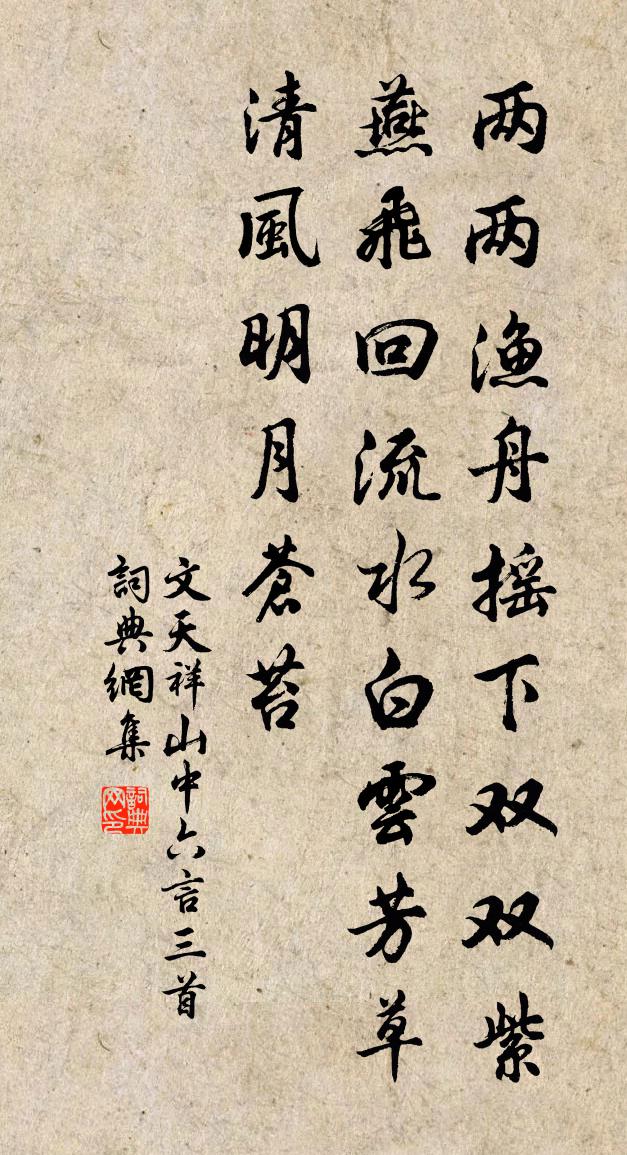 两两渔舟摇下双双紫
燕飛回流水白雲芳草
清風明月蒼苔
文天祥山中六言三首
詞典網集
詞典网印